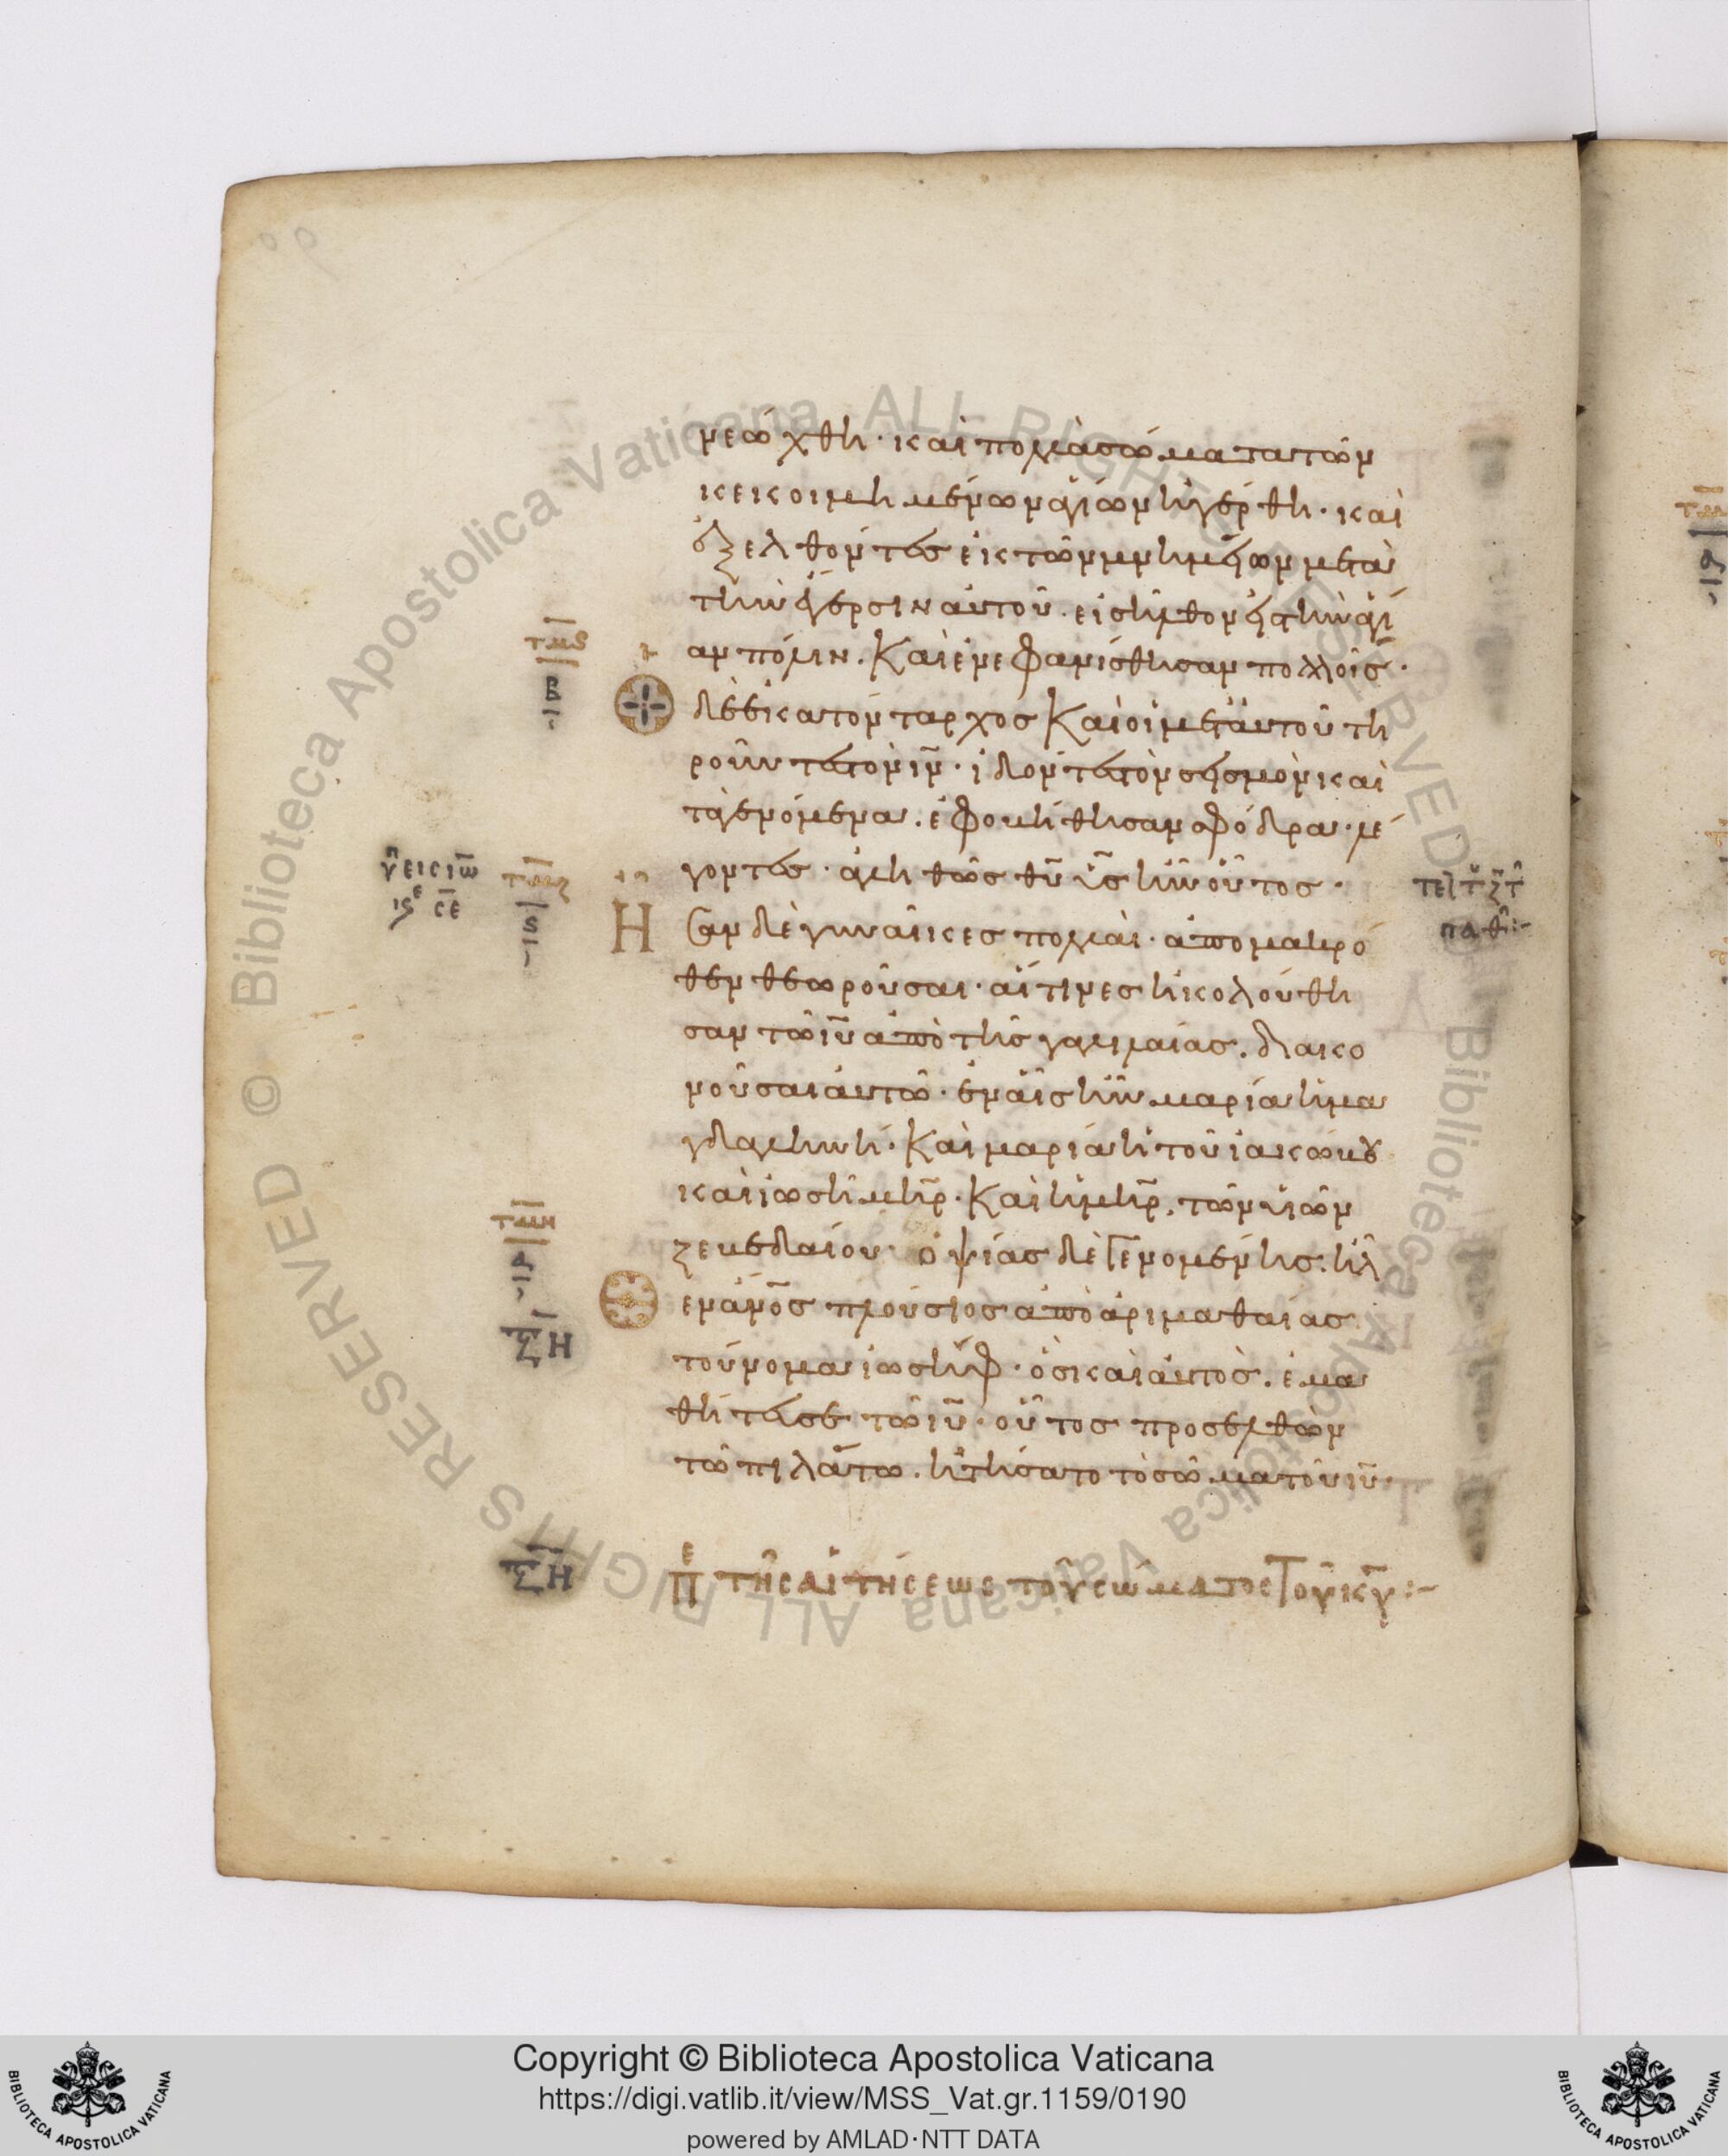 νεώχθη· καὶ πολλὰ σώματα τῶν
κεκοιμημένων ἁγίων ἠγέρθη· καὶ
ἐξελθόντες ἐκ τῶν μνημείων μετὰ
τὴν ἔγερσιν αὐτοῦ. εἰσῆλθον εἰς τὴν ἁγί
αν πόλιν. Καὶ ἐνεφανίσθησαν πολλοῖς·
τμς
β
δὲ ἑκατόνταρχος καὶ οἱ μετ' αὐτοῦ τη
ροῦντες τὸν ιν̄· ἰδόντες τὸν σεισμὸν καὶ
τὰ γενόμενα. ἐφοβήθησαν σφόδρα· λέ
γοντες· ἀληθῶς θῡ υἱς̄ ἦν οὗτος·
τμζ
ς
Ησαν δὲ γυναῖκες πολλαὶ· ἀπὸ μακρό
θεν θεωροῦσαι· αἵτινες ἠκολούθη
σαν τῶ ιῡ ἀπὸ τῆς γαλιλαίας. διακο
νοῦσαι αὐτῶ· ἐν αἷς ἦν μαρία ἡ μα
γδαληνή· Καὶ μαρία ἡ τοῦ ἰακώβου
καὶ ἰωσῆ μη̄ρ· Καὶ ἡ μη̄ρ. τῶν υἱῶν
ζεβεδαίου· ὀψίας δὲ γενομένης. ἦλ
τμη
α
ΞΗ
εν ἀνο̄ς πλούσιος ἀπὸ ἀριμαθαίας
τοὔνομα ἰωσήφ· ὃς καὶ αὐτὸς. ἐμα
θήτευσε τῶ ιῡ· οὗτος προσελθὼν
τῶ πιλάτω. ἠτήσατο τὸ σῶμα τοῦ ιῡ·
ΞΗ
πε τῆς αἰτήσεως τοῦ σώματος τοῦ κῡ:–
Copyright © Biblioteca Apostolica Vaticana
https://digi.vatlib.it/view/MSS_Vat.gr.1159/0190
powered by AMLAD·NTT DATA